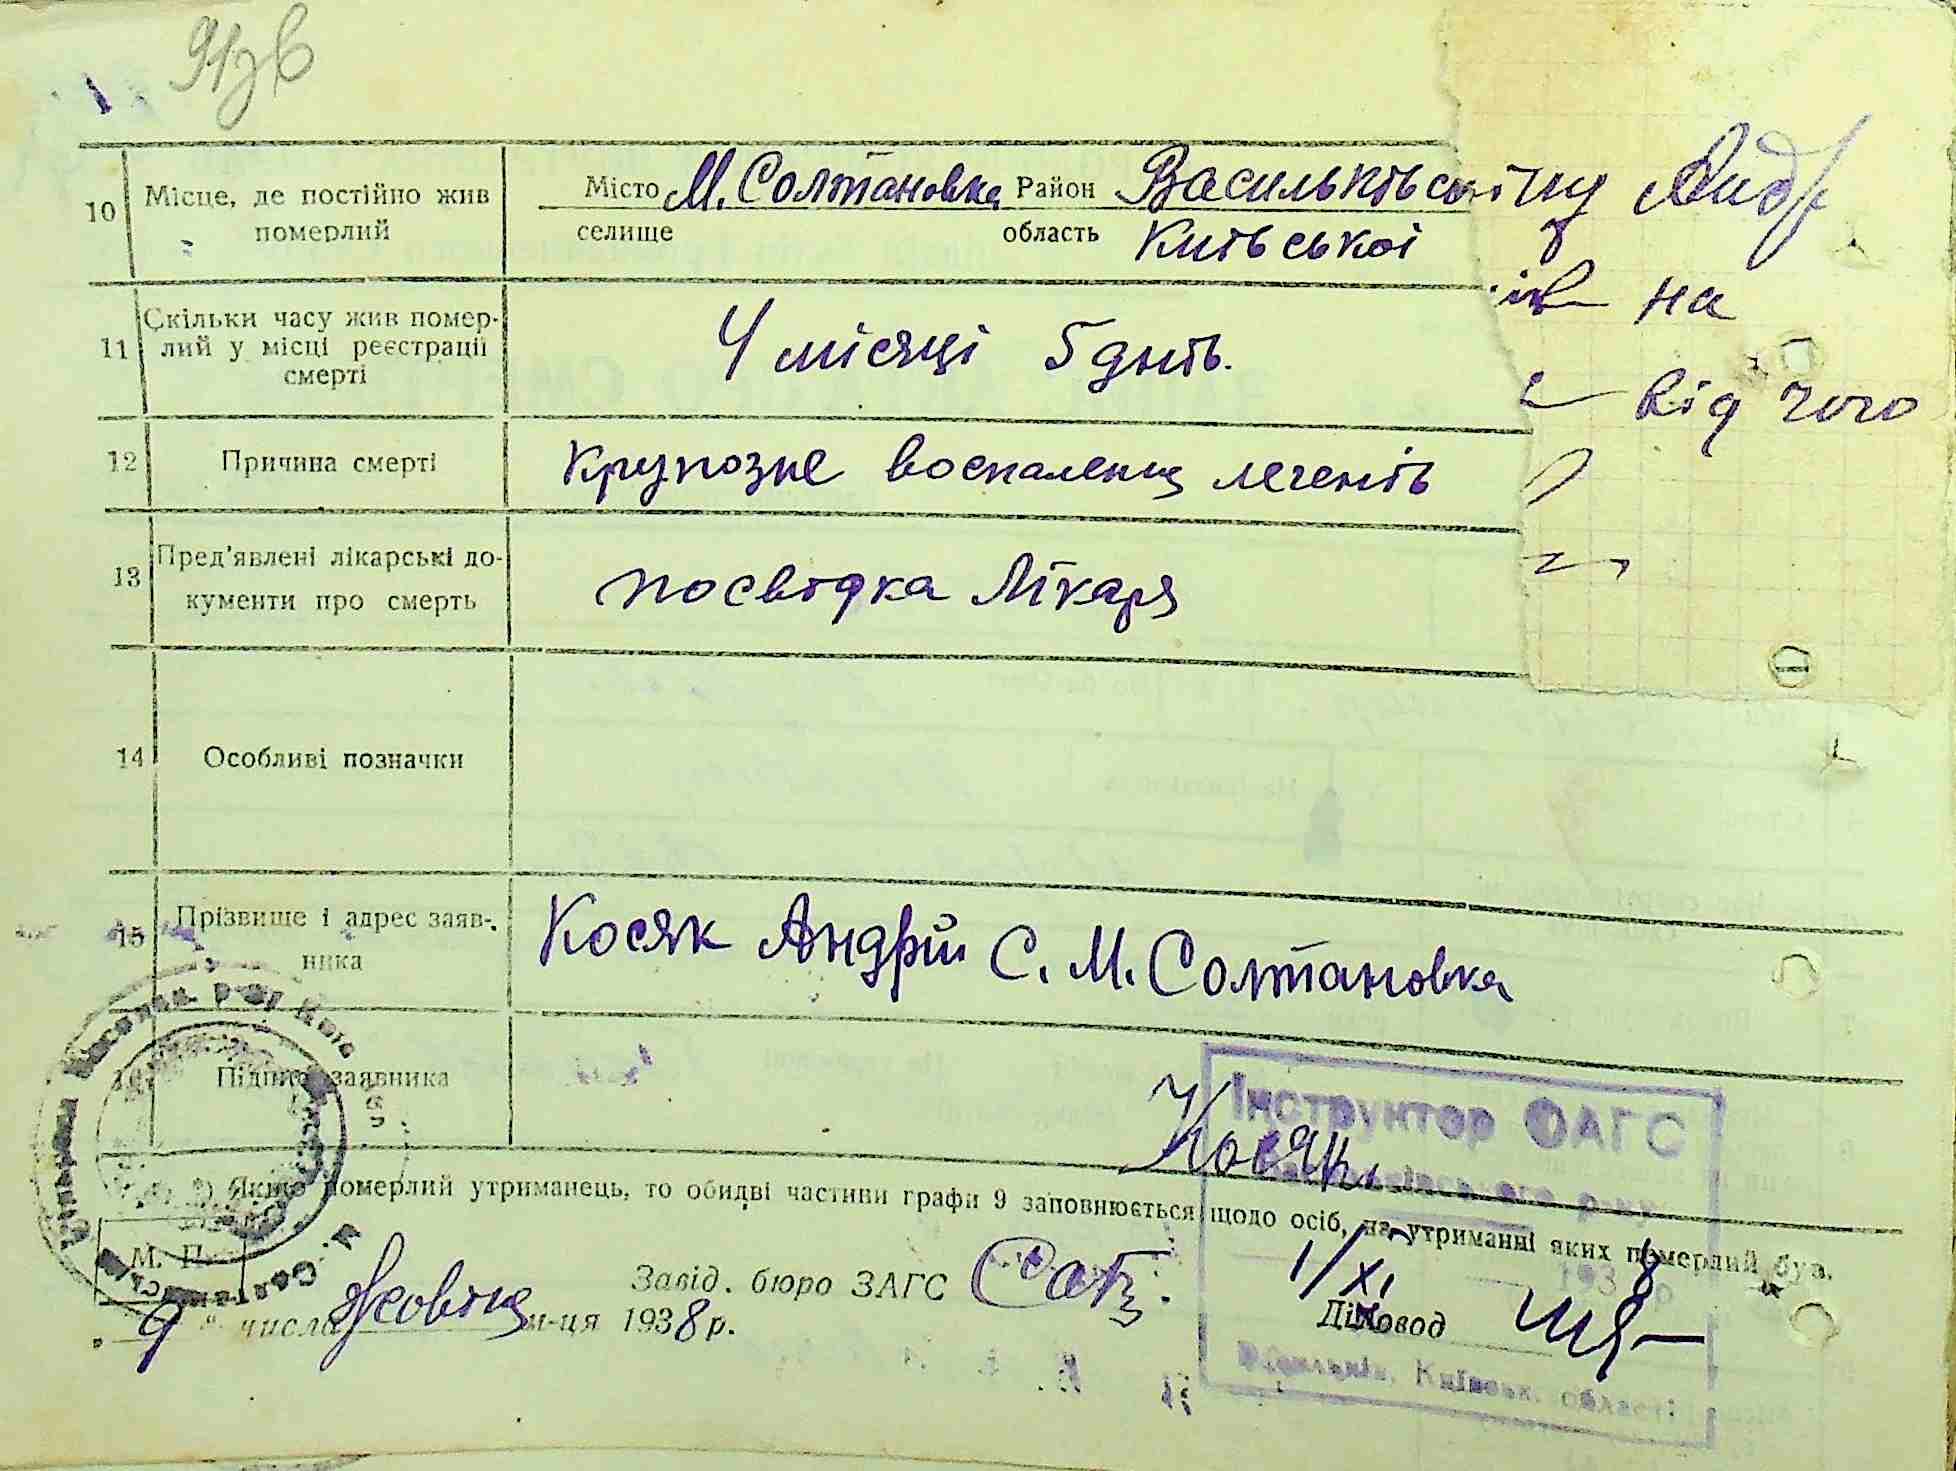 91зв
10 Місце, де постійно жив Місто М. Солтановка Район Васильківськ
померлий селище область Київської
11 Скільки часу жив помер-
лий у місці реєстрації 4 місяці 5 днів.
смерті
12 Причина смерті Крупозне воспалення легенів
13 Пред'явлені лікарські до- посвідка Лікаря
кументи про смерть
на
від чого
14 Особливі позначки
15 Прізвище і адрес заяв- Косяк Андрій С. М. Солтановка
ника
Підпис заявника Косяк.
Інструктор ЗАГС
Васильківського р-ну
*) Якщо померлий утриманець, то обидві частини графи 9 заповнюється щодо осіб, на утриманні яких померлий був.
М. П. Завід. бюро ЗАГС 1/XI 1938 р.
„9" числа Жовтня м-ця 1938 р. Діловод
Васильків, Київськ. області